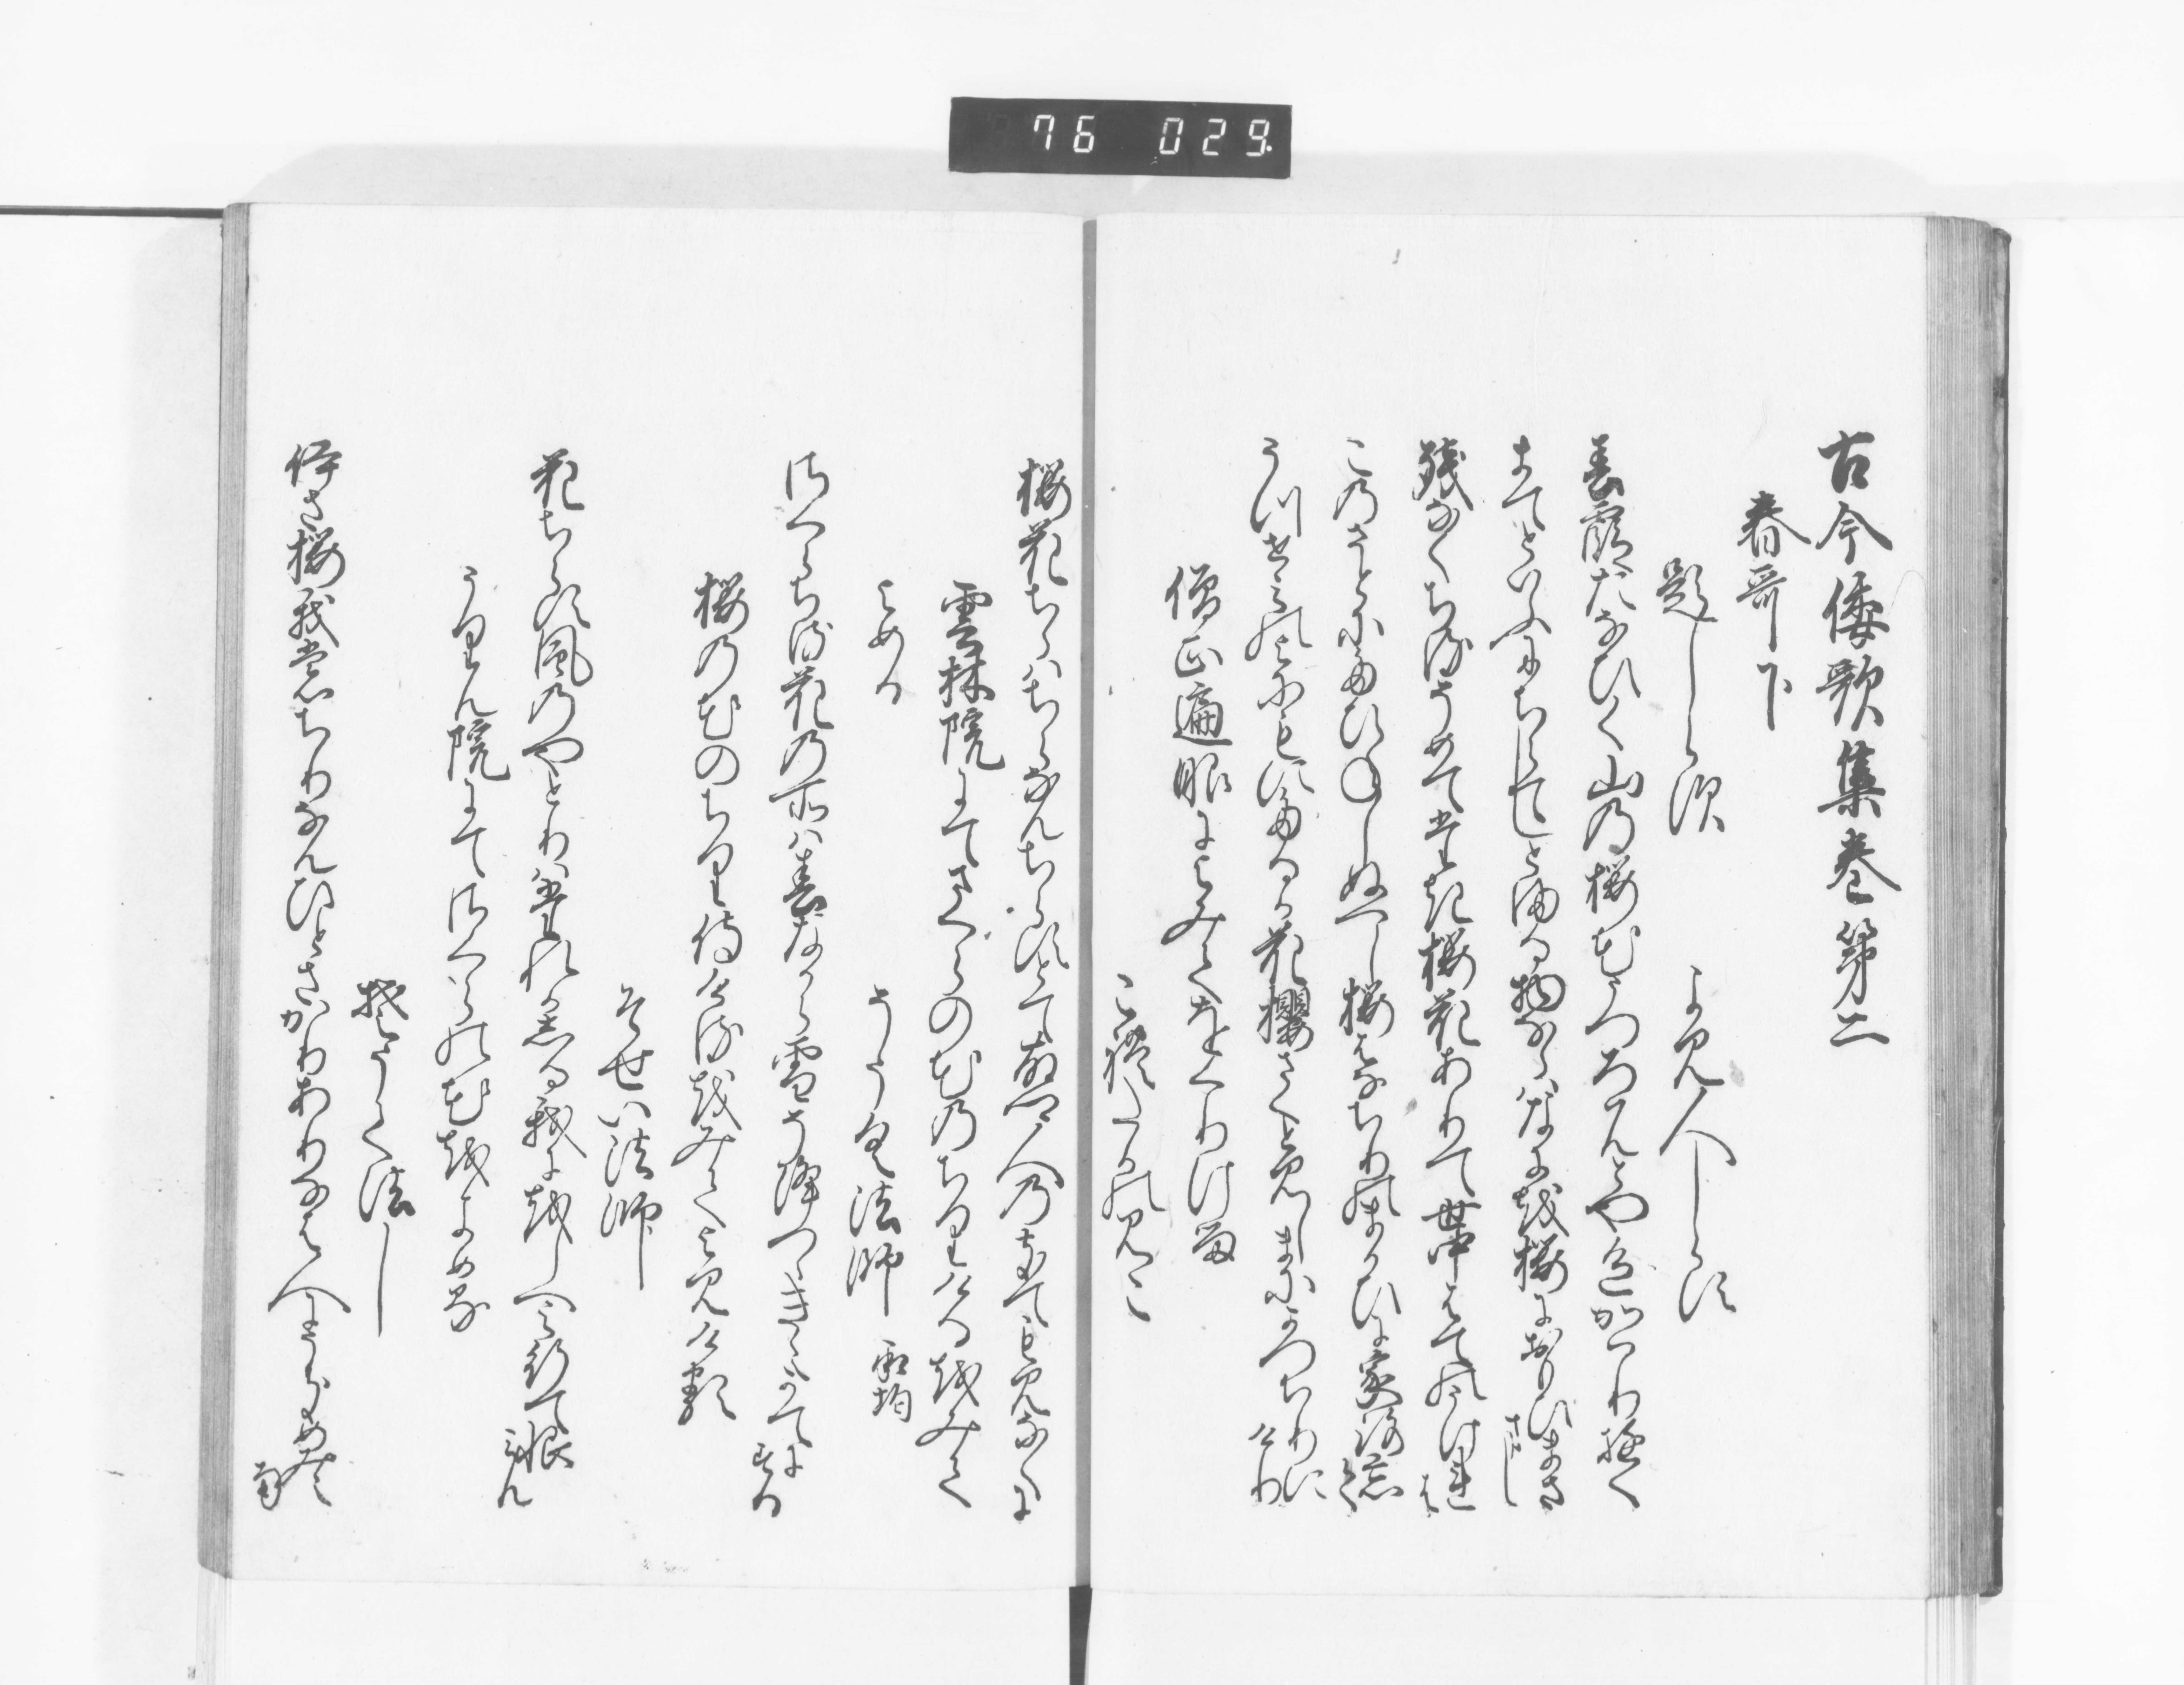 76 029
古今倭歌集巻第二
春哥下
題しらす
よみ人しらす
春霞たなひく山の桜花うつろはんとや色かはり行く
まてといふにちらてしとまる物ならはなにを桜におもひまさ
まし
残なくちるそめてたき桜花ありて世中はては風けれ
は
このさとにたひねしぬへし桜はなちりのまかひに家路忘
て
うつせみの世にもにたるか花櫻さくと見しまにかつちりに
けり
僧正遍昭によみてをくりける
これたかのみこ
桜花ちらはちらなんちらすとて故郷人のきても見なくに
雲林院にてさくらの花のちりけるをみて
よめる
そうく法師 承均
さくらちる花の所は春なから雪そ降つつきえかてに
する
桜の花のちり侍けるをみてよみける
そせい法師
花ちらす風のやとりはたれかしる我にをしへよ行て恨
みん
うりん院にてさくらの花をよめる
そうく法し
いさ桜我もちりなんひとさかりありなは人にうきめみえ
南